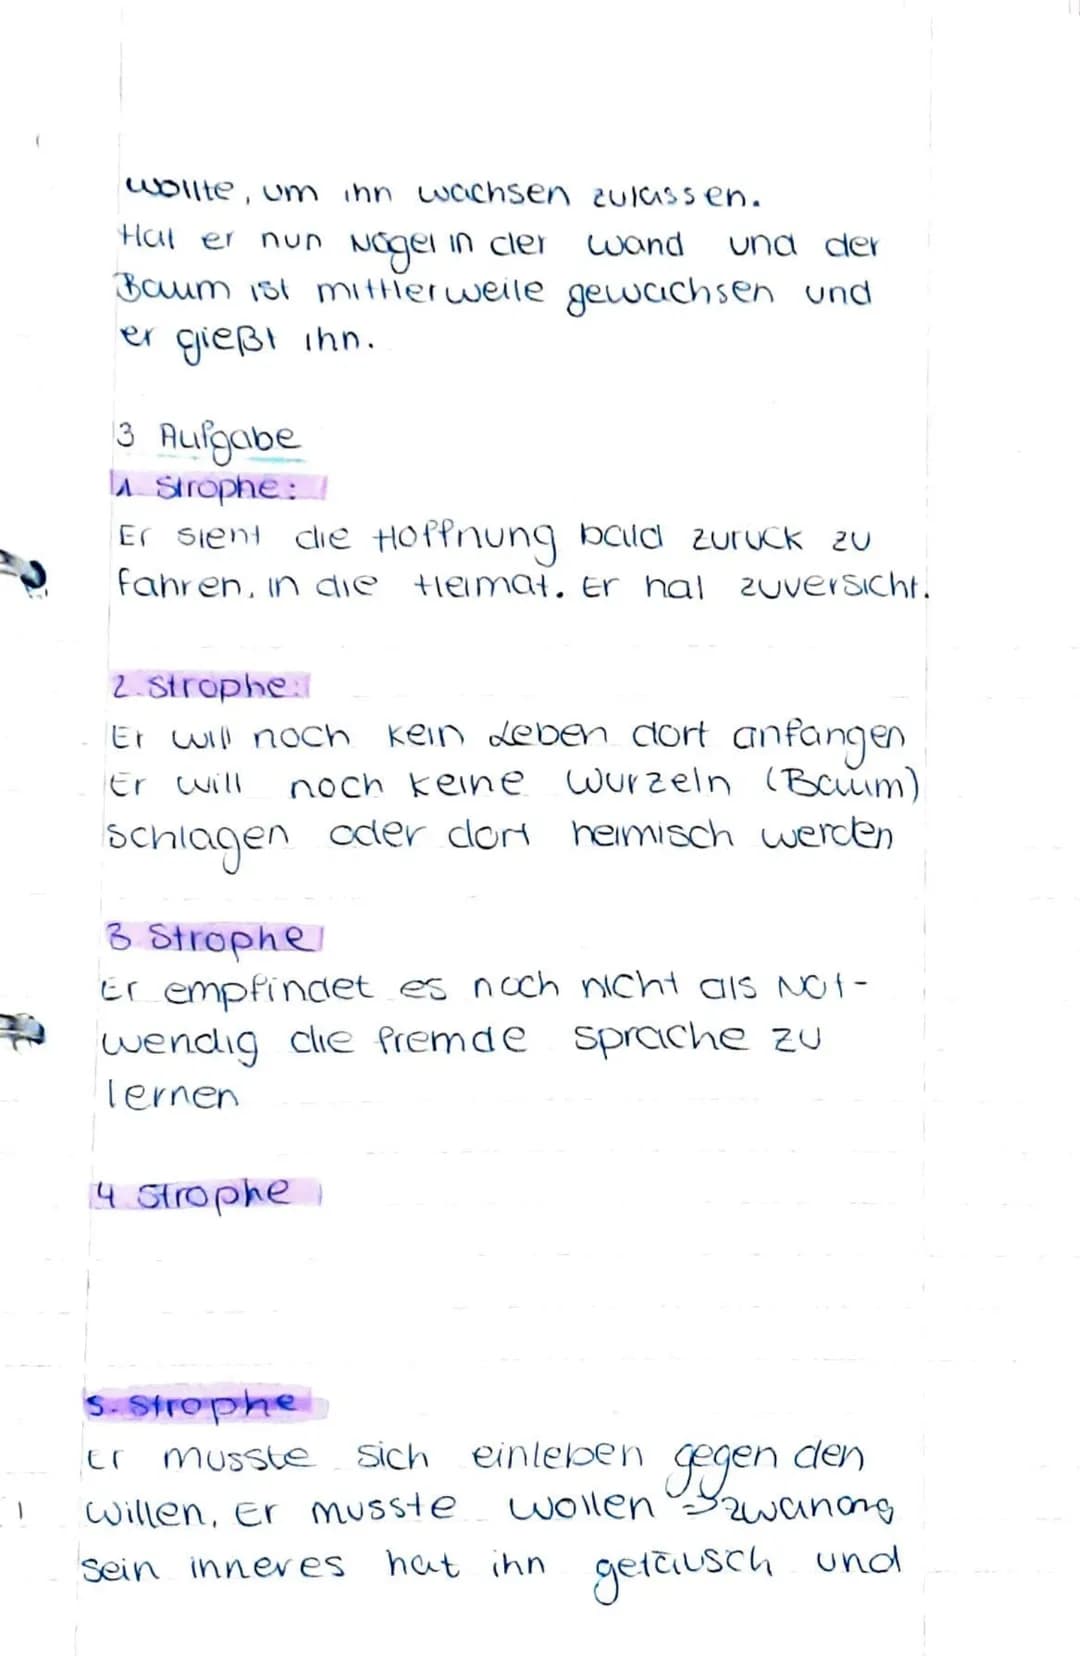 wollte, um ihn wachsen zulassen.
Hat er nun Nägel in der Wand und der
Baum ist mittlerweile gewachsen und
er gießt ihn.
3 Aufgabe
1 Strophe:
Er sieht die Hoffnung bald zurück zu
fahren, in die Heimat. Er hat zuversicht.
2. Strophe:
Er will noch kein Leben dort anfangen
Er will noch keine Wurzeln (Baum)
schlagen oder dort heimisch werden
3 Strophe
Er empfindet es noch nicht als Not-
wendig die fremde sprache zu
lernen
4 Strophe
5. Strophe
Er musste sich einleben gegen den
willen, Er musste wollen =>
sein inneres hat ihn getäusch und